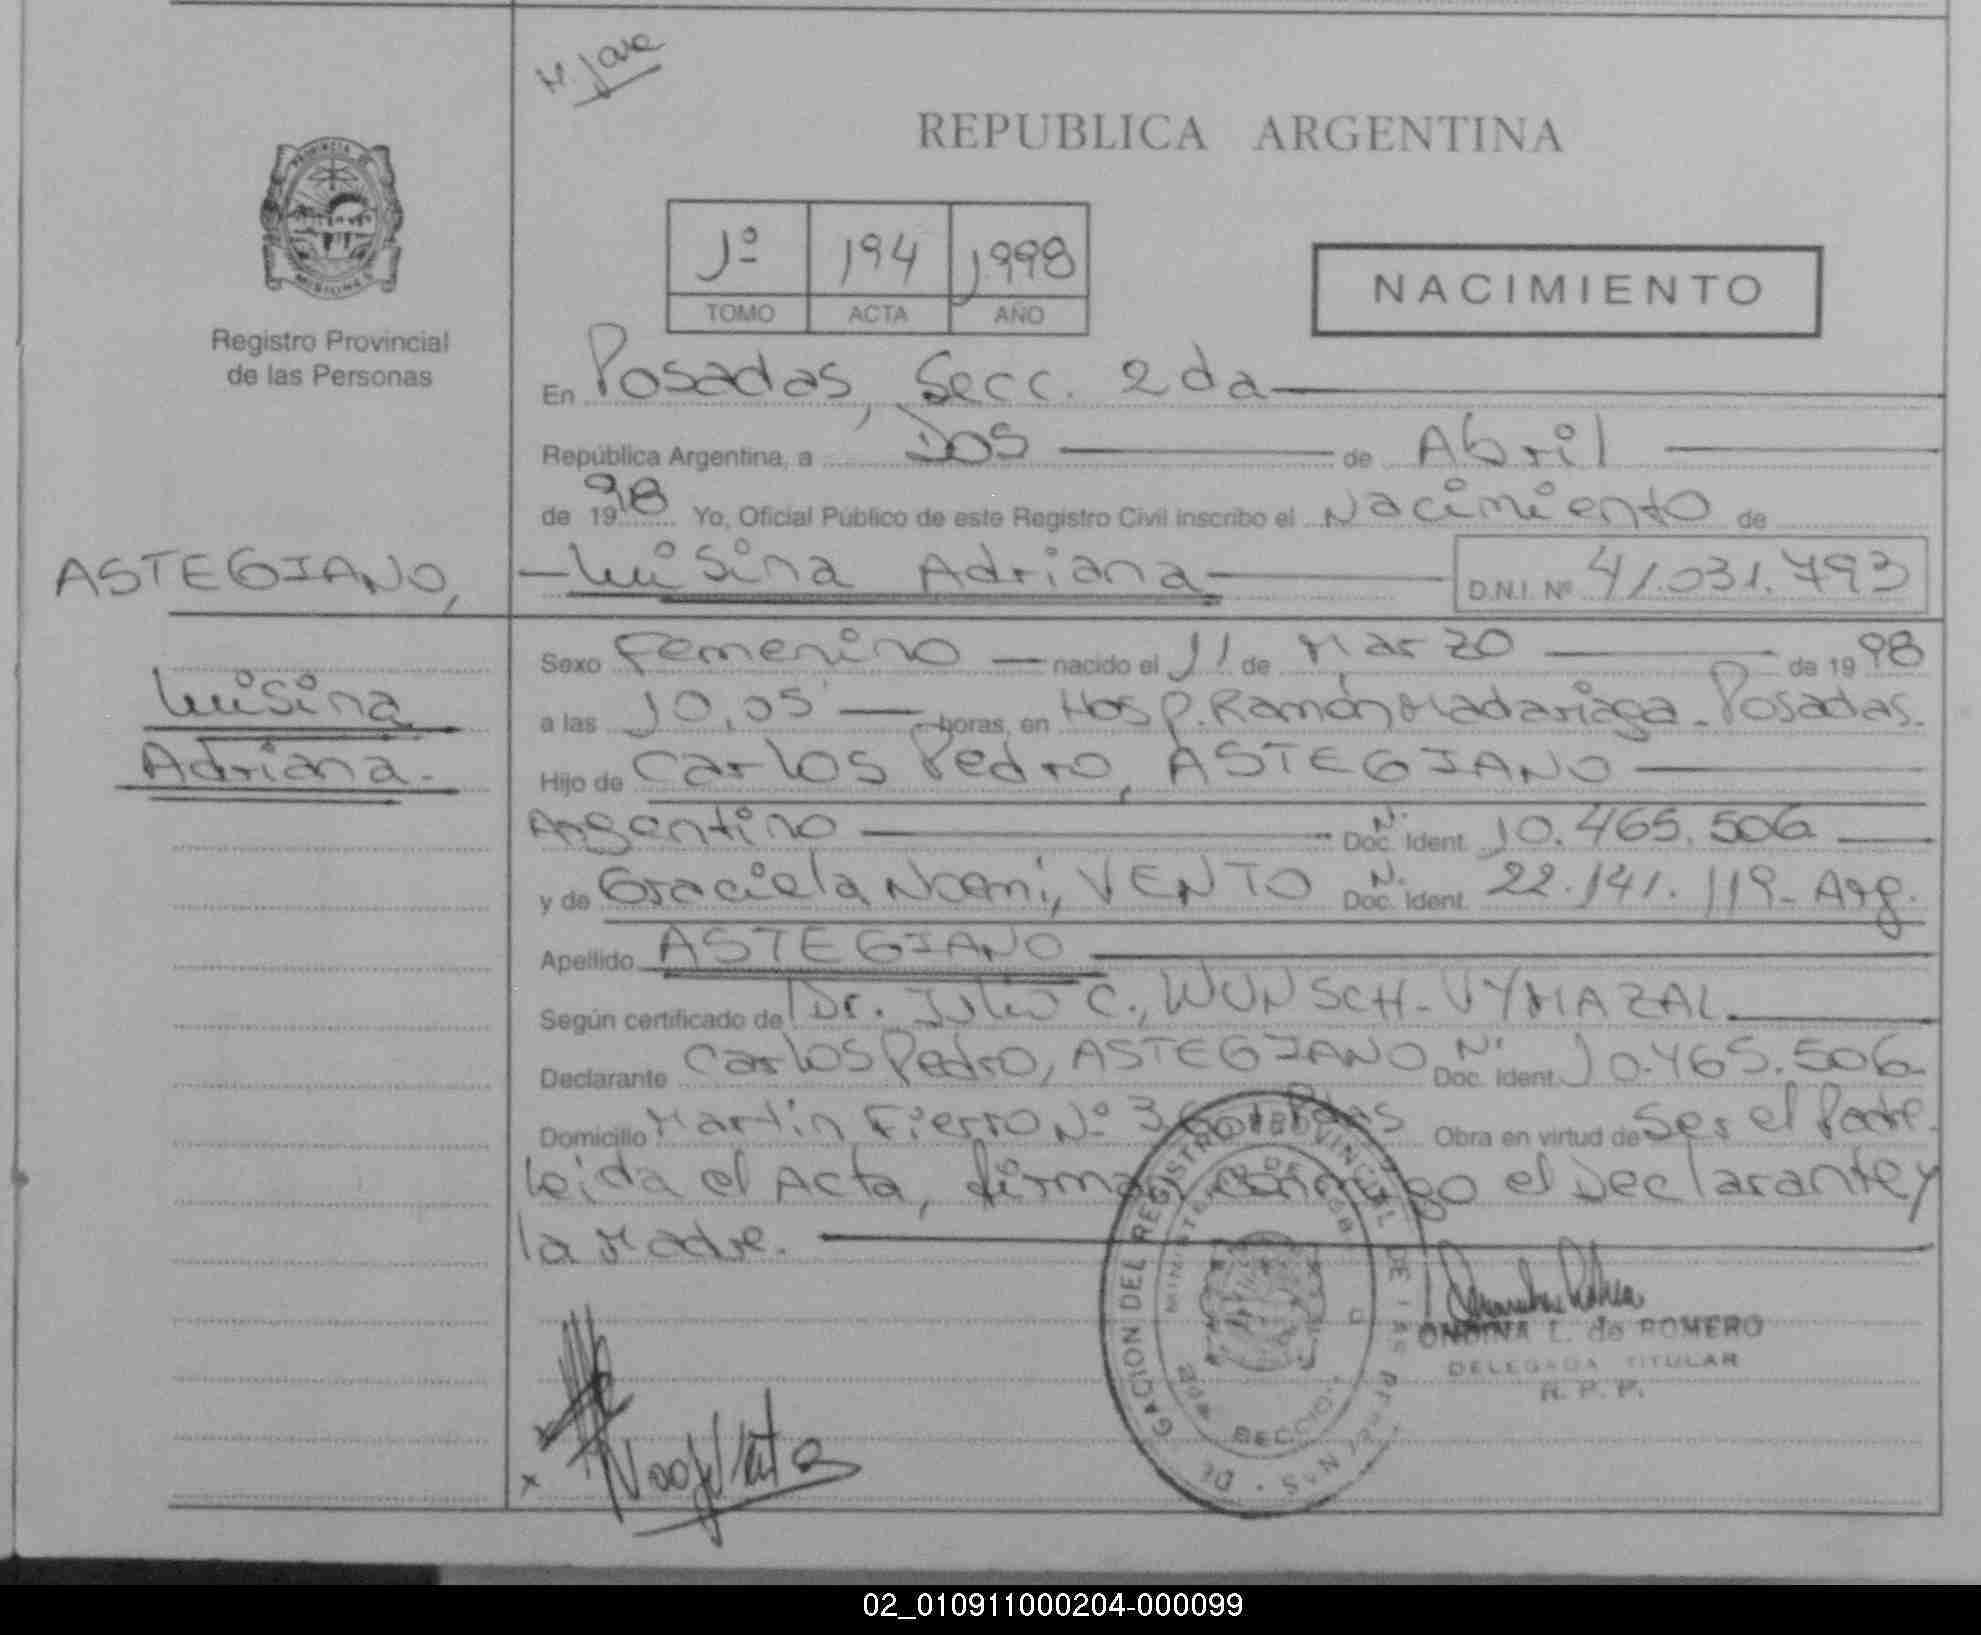 M. Jose
REPUBLICA ARGENTINA
PROVINCIA DE
MISIONES
1º 194 1998
TOMO ACTA AÑO
NACIMIENTO
Registro Provincial
de las Personas
En Posadas, Secc. 2da
República Argentina, a Dos de Abril
de 1998 Yo, Oficial Público de este Registro Civil inscribo el Nacimiento de
ASTEGIANO,
Luisina Adriana D.N.I. Nº 41.031.793
Luisina
Adriana.
Sexo Femenino nacido el 11 de Marzo de 1998
a las 10,05 horas, en Hosp. Ramón Madariaga - Posadas.
Hijo de Carlos Pedro, ASTEGIANO
Argentino Doc. Ident. N. 10.465.506
y de Graciela Noemi, VENTO Doc. Ident. N. 22.141.119- Arg.
Apellido ASTEGIANO
Según certificado de Dr. Julio C., WUNSCH-VYMAZAL.
Declarante Carlos Pedro, ASTEGIANO Doc. Ident. N. 10.465.506
Domicilio Martin Fierro Nº Pdas Obra en virtud de Ser el Padre.
leida el Acta, firma conmigo el Declarante y
la Madre.
DELEGACION DEL REGISTRO PROVINCIAL DE LAS PERSONAS
ONDINA L. de ROMERO
DELEGADA TITULAR
R. P. P.
02_010911000204-000099